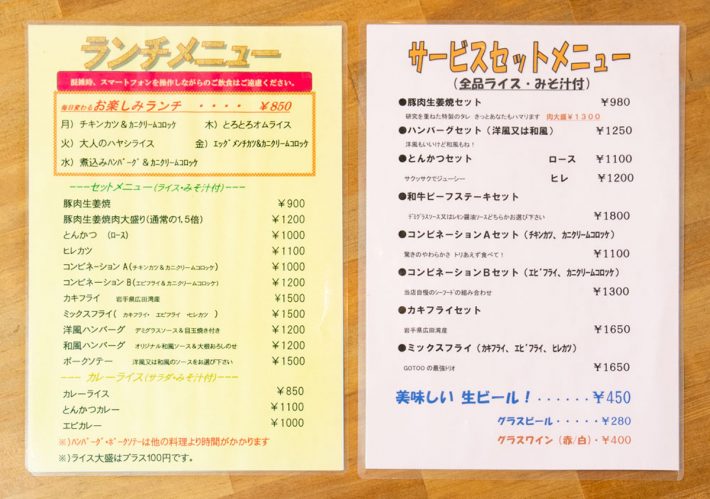 ランチメニュー
混雑時、スマートフォンを操作しながらのご飲食はご遠慮ください。
毎日変わる お楽しみランチ ・・・・ ￥850
月）チキンカツ＆カニクリームコロッケ 木）とろとろオムライス
火）大人のハヤシライス 金）エッグメンチカツ&カニクリームコロッケ
水）煮込みハンバーグ＆カニクリームコロッケ
---セットメニュー(ライス・みそ汁付)
豚肉生姜焼 ￥900
豚肉生姜焼肉大盛り(通常の1,5倍) ￥1200
とんかつ (ロース) ￥1000
ヒレカツ ￥1100
コンビネーションA(チキンカツ＆カニクリームコロッケ) ￥1000
コンビネーションB(エビフライ＆カニクリームコロッケ) ￥1200
カキフライ 岩手県広田湾産 ￥1500
ミックスフライ( カキフライ・ エビフライ ・ヒレカツ ) ￥1500
洋風ハンバーグ デミグラスソース＆目玉焼き付き ￥1200
和風ハンバーグ オリジナル和風ソース＆大根おろしのせ ￥1200
ポークソテー 洋風又は和風のソースをお選び下さい ￥1500
--- カレーライス(サラダ・みそ汁付)---
カレーライス ￥850
とんかつカレー ￥1100
エビカレー ￥1000
※)ハンバーグ・ポークソテーは他の料理より時間がかかります
※)ライス大盛はプラス100円です。
サービスセットメニュー
(全品ライス・みそ汁付)
●豚肉生姜焼セット ￥980
研究を重ねた特製のタレ きっとあなたもハマります 肉大盛￥1300
●ハンバーグセット（洋風又は和風） ￥1250
洋風もいいけど和風もね！
●とんかつセット ロース ￥1100
サクッサクでジューシー ヒレ ￥1200
●和牛ビーフステーキセット
デミグラスソース又はレモン醤油ソースどちらかお選び下さい ￥1800
●コンビネーションAセット（チキンカツ、カニクリームコロッケ）
驚きのやわらかさ トリあえず食べて！ ￥1100
●コンビネーションBセット（エビフライ、カニクリームコロッケ）
当店自慢のシーフードの組み合わせ ￥1300
●カキフライセット
岩手県広田湾産 ￥1650
●ミックスフライ（カキフライ、エビフライ、ヒレカツ）
GOTOOの最強トリオ ￥1650
美味しい 生ビール！・・・・・・￥450
グラスビール・・・・・￥280
グラスワイン（赤/白）・￥400